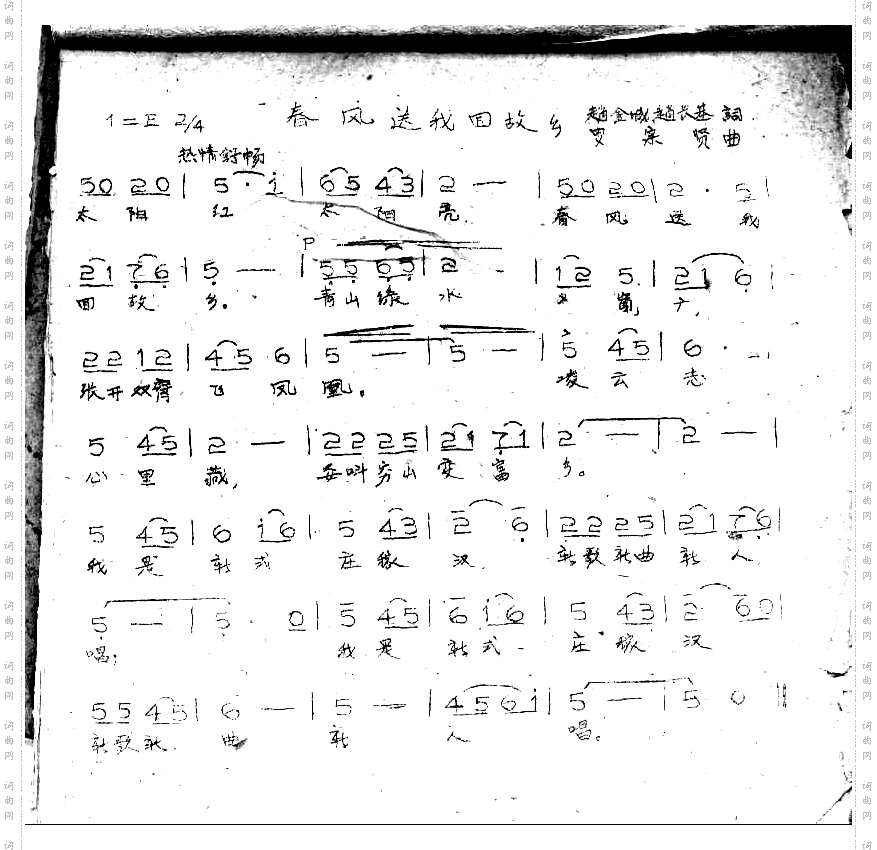 1=E 2/4 春风送我回故乡 赵金城 赵长基 詞
宗贤曲
热情舒畅
50 20 | 5 · i | 65 43 | 2 — | 50 20 | 2 · 5 |
太 阳 红 太 阳 亮, 春 风 送 我
21 76 | 5 — | 55 65 | 2 - | 12 5 | 21 6 |
回 故 乡。 青山绿水
22 12 | 45 6 | 5 — | 5 — | 5 45 | 6 ·
张开双臂 飞 凤 凰。 凌 云 志
5 45 | 2 — | 22 25 | 21 71 | 2 — | 2 — |
心 里 藏, 要叫穷山变富 乡。
5 45 | 6 i6 | 5 43 | 2 6 | 22 25 | 21 76 |
我 是 新 式 庄 稼 汉 新歌新曲 新 人
5 — | 5 · 0 | 5 45 | 6 i6 | 5 43 | 2 60 |
唱; 我 是 新 式 庄 稼 汉
55 45 | 6 — | 5 — | 456i | 5 — | 5 0 ‖
新歌新 曲 新 人 唱。
词曲网